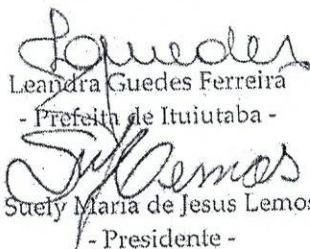 LGuedes
Leandra Guedes Ferreira
- Prefeita de Ituiutaba -
Suly Lemos
Suely Maria de Jesus Lemos
- Presidente -